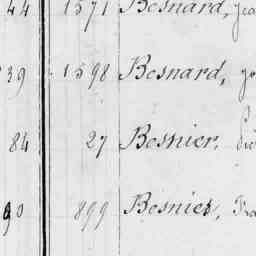 44 1571 Besnard, Jea
39 1598 Besnard,
84 27 Besnier,
90 899 Besnier, Fra